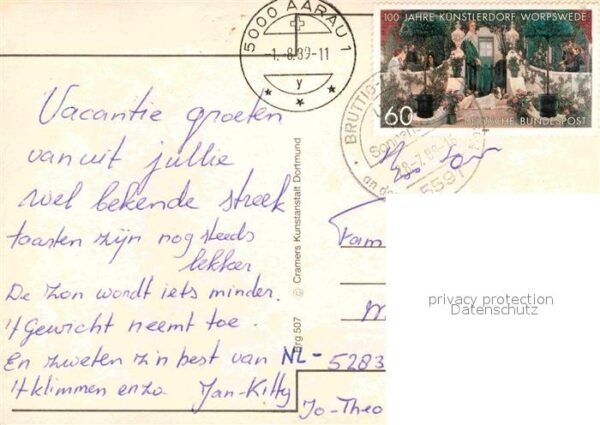 5000 AARAU 1
-1.-8.89-11
y
100 JAHRE KÜNSTLERDORF WORPSWEDE
60
DEUTSCHE BUNDESPOST
BRUTTIG-
Sonnen
28-7.89-
an de
5591
Vacantie groeten
vanuit jullie
wel bekende streek
toasten zijn nog steeds
lekker
De zon wordt iets minder.
't Gewicht neemt toe.
En zweten z'n best van
't klimmen enzo Jan-Kitty
Jo-Theo
Fam
NL-5283
© Cramers Kunstanstalt Dortmund
rg 507
privacy protection
Datenschutz